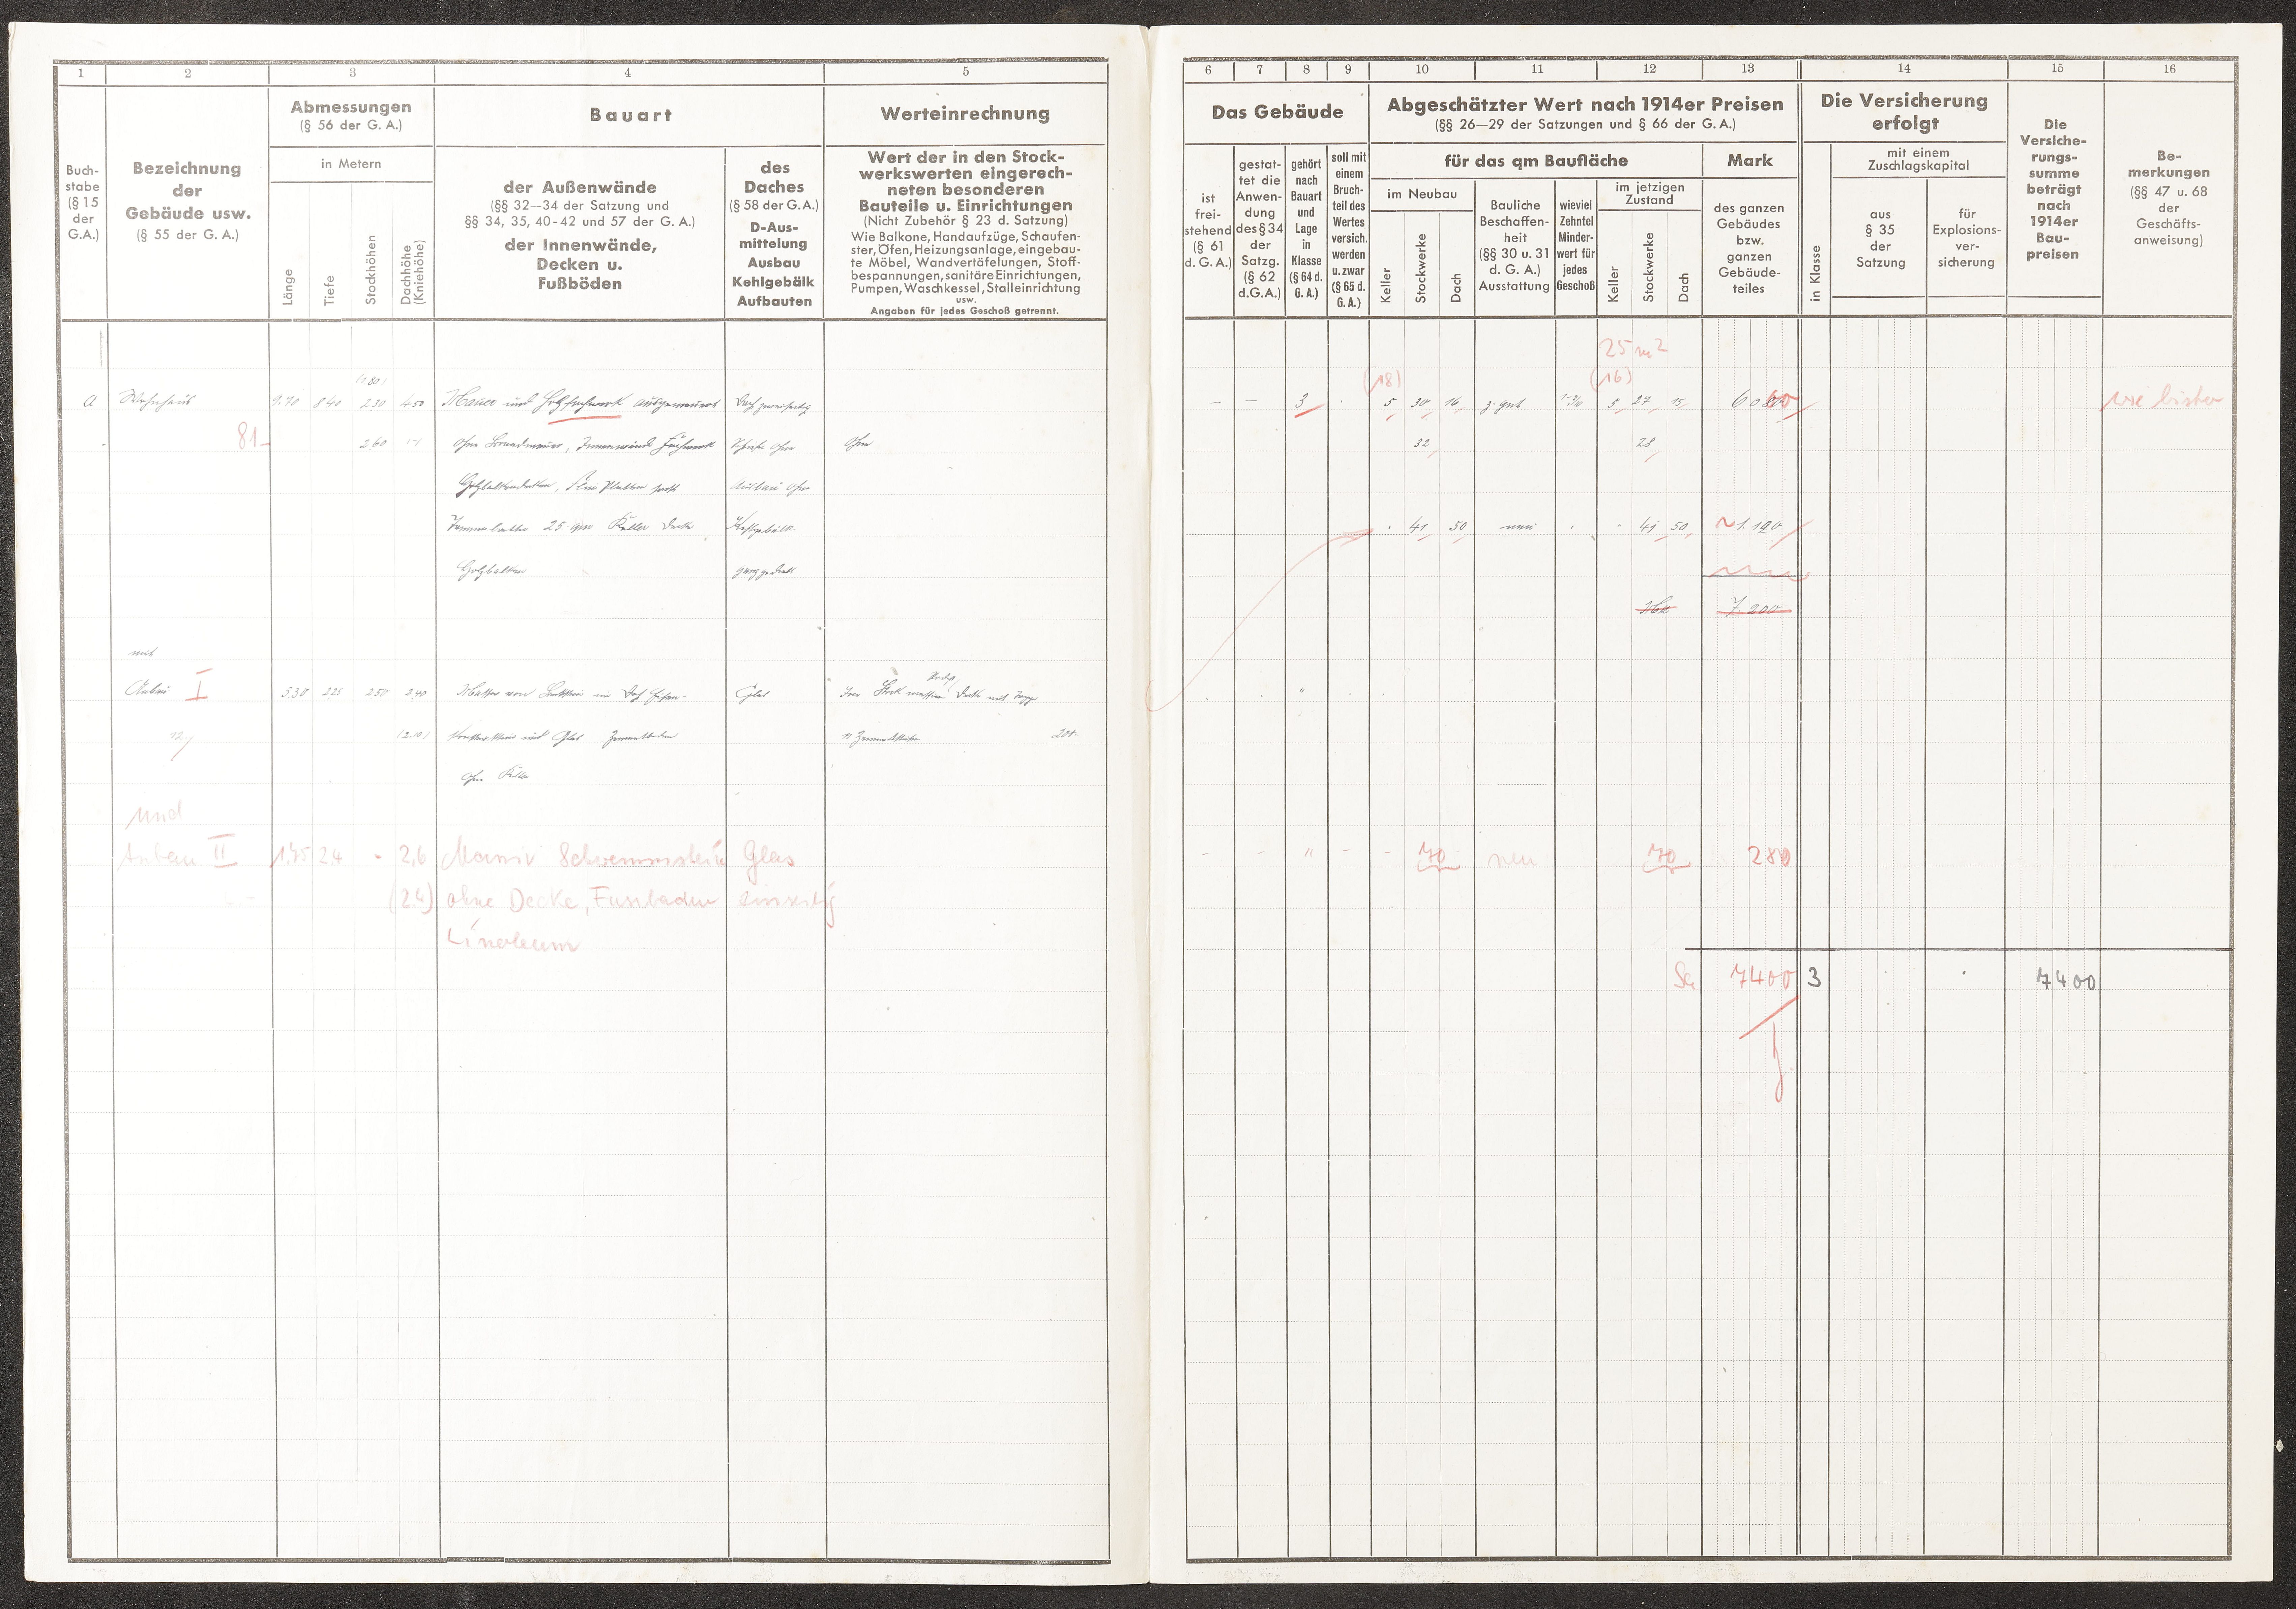 1 2 3 4 5
Buch-
stabe
(§ 15
der
G.A.)
Bezeichnung
der
Gebäude usw.
(§ 55 der G. A.)
Abmessungen
(§ 56 der G. A.)
in Metern
Länge
Tiefe
Stockhöhen
Dachhöhe
(Kniehöhe)
Bauart
der Außenwände
(§§ 32—34 der Satzung und
§§ 34, 35, 40-42 und 57 der G. A.)
der Innenwände,
Decken u.
Fußböden
des
Daches
(§ 58 der G.A.)
D-Aus-
mittelung
Ausbau
Kehlgebälk
Aufbauten
Werteinrechnung
Wert der in den Stock-
werkswerten eingerech-
neten besonderen
Bauteile u. Einrichtungen
(Nicht Zubehör § 23 d. Satzung)
Wie Balkone, Handaufzüge, Schaufen-
ster, Öfen, Heizungsanlage, eingebau-
te Möbel, Wandvertäfelungen, Stoff-
bespannungen, sanitäre Einrichtungen,
Pumpen, Waschkessel, Stalleinrichtung
usw.
Angaben für jedes Geschoß getrennt.
a Wohnhaus 9.70 8.40 2.30 4.50 Mauer und Holzfachwerk ausgemauert
81 2.60 ohne Brandmauer, Innenwände Fachwerk ohne
Holzbalkendecken
25 qm Keller Decke Kehlgebälk
Holzbalken
und
Anbau I 5.30 2.25 2.50 2.40 Glas
ohne Keller
und
Anbau II 1.75 2.4 - 2.6 Massiv Schwemmstein Glas
(2.4) ohne Decke, Fussboden einseitig
Linoleum
6 7 8 9 10 11 12 13 14 15 16
Das Gebäude
ist
frei-
stehend
(§ 61
d. G. A.)
gestat-
tet die
Anwen-
dung
des § 34
der
Satzg.
(§ 62
d.G.A.)
gehört
nach
Bauart
und
Lage
in
Klasse
(§ 64 d.
G. A.)
soll mit
einem
Bruch-
teil des
Wertes
versich.
werden
u. zwar
(§ 65 d.
G. A.)
Abgeschätzter Wert nach 1914er Preisen
(§§ 26—29 der Satzungen und § 66 der G. A.)
für das qm Baufläche
im Neubau
Keller
Stockwerke
Dach
Bauliche
Beschaffen-
heit
(§§ 30 u. 31
d. G. A.)
Ausstattung
wieviel
Zehntel
Minder-
wert für
jedes
Geschoß
im jetzigen
Zustand
Keller
Stockwerke
Dach
Mark
des ganzen
Gebäudes
bzw.
ganzen
Gebäude-
teiles
Die Versicherung
erfolgt
in Klasse
mit einem
Zuschlagskapital
aus
§ 35
der
Satzung
für
Explosions-
ver-
sicherung
Die
Versiche-
rungs-
summe
beträgt
nach
1914er
Bau-
preisen
Be-
merkungen
(§§ 47 u. 68
der
Geschäfts-
anweisung)
25 m2
(18) (16)
- - 3 5 30 16 z. gut 5 27 15 wie bisher
32 28
41 50 neu 41 50 1.190
Mk 7.200
- - " - - 70 neu 70 280
Sa 7400 3 7400